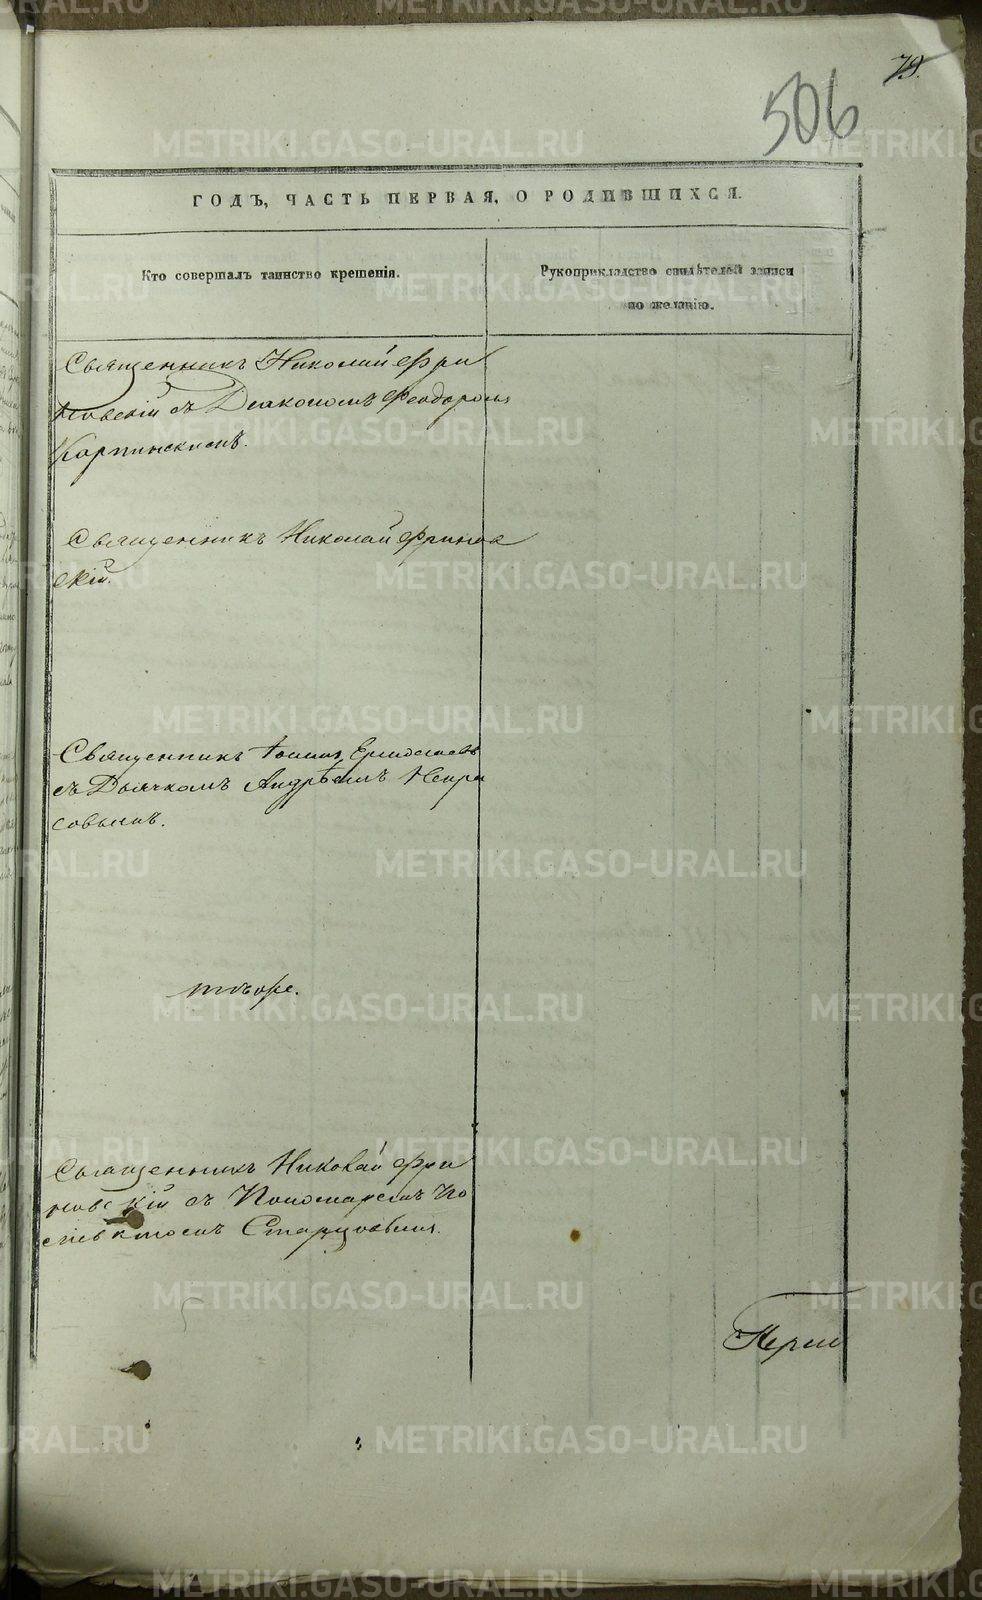 79.
506
ГОДЪ, ЧАСТЬ ПЕРВАЯ, О РОДИВШИХСЯ.
Кто совершалъ таинство крещенія.
Рукоприкладство свидѣтелей записи
по желанію.
Священникъ Николай Фри
новскій съ Діакономъ Феодоромъ
Карпинскимъ.
Священникъ Николай Финов
скій.
Священникъ Іоаннъ
съ Дьячкомъ Андреемъ Некра
совымъ.
тѣже.
Священникъ Николай Фри
новскій съ Пономаремъ
Старцовымъ.
METRIKI.GASO-URAL.RU